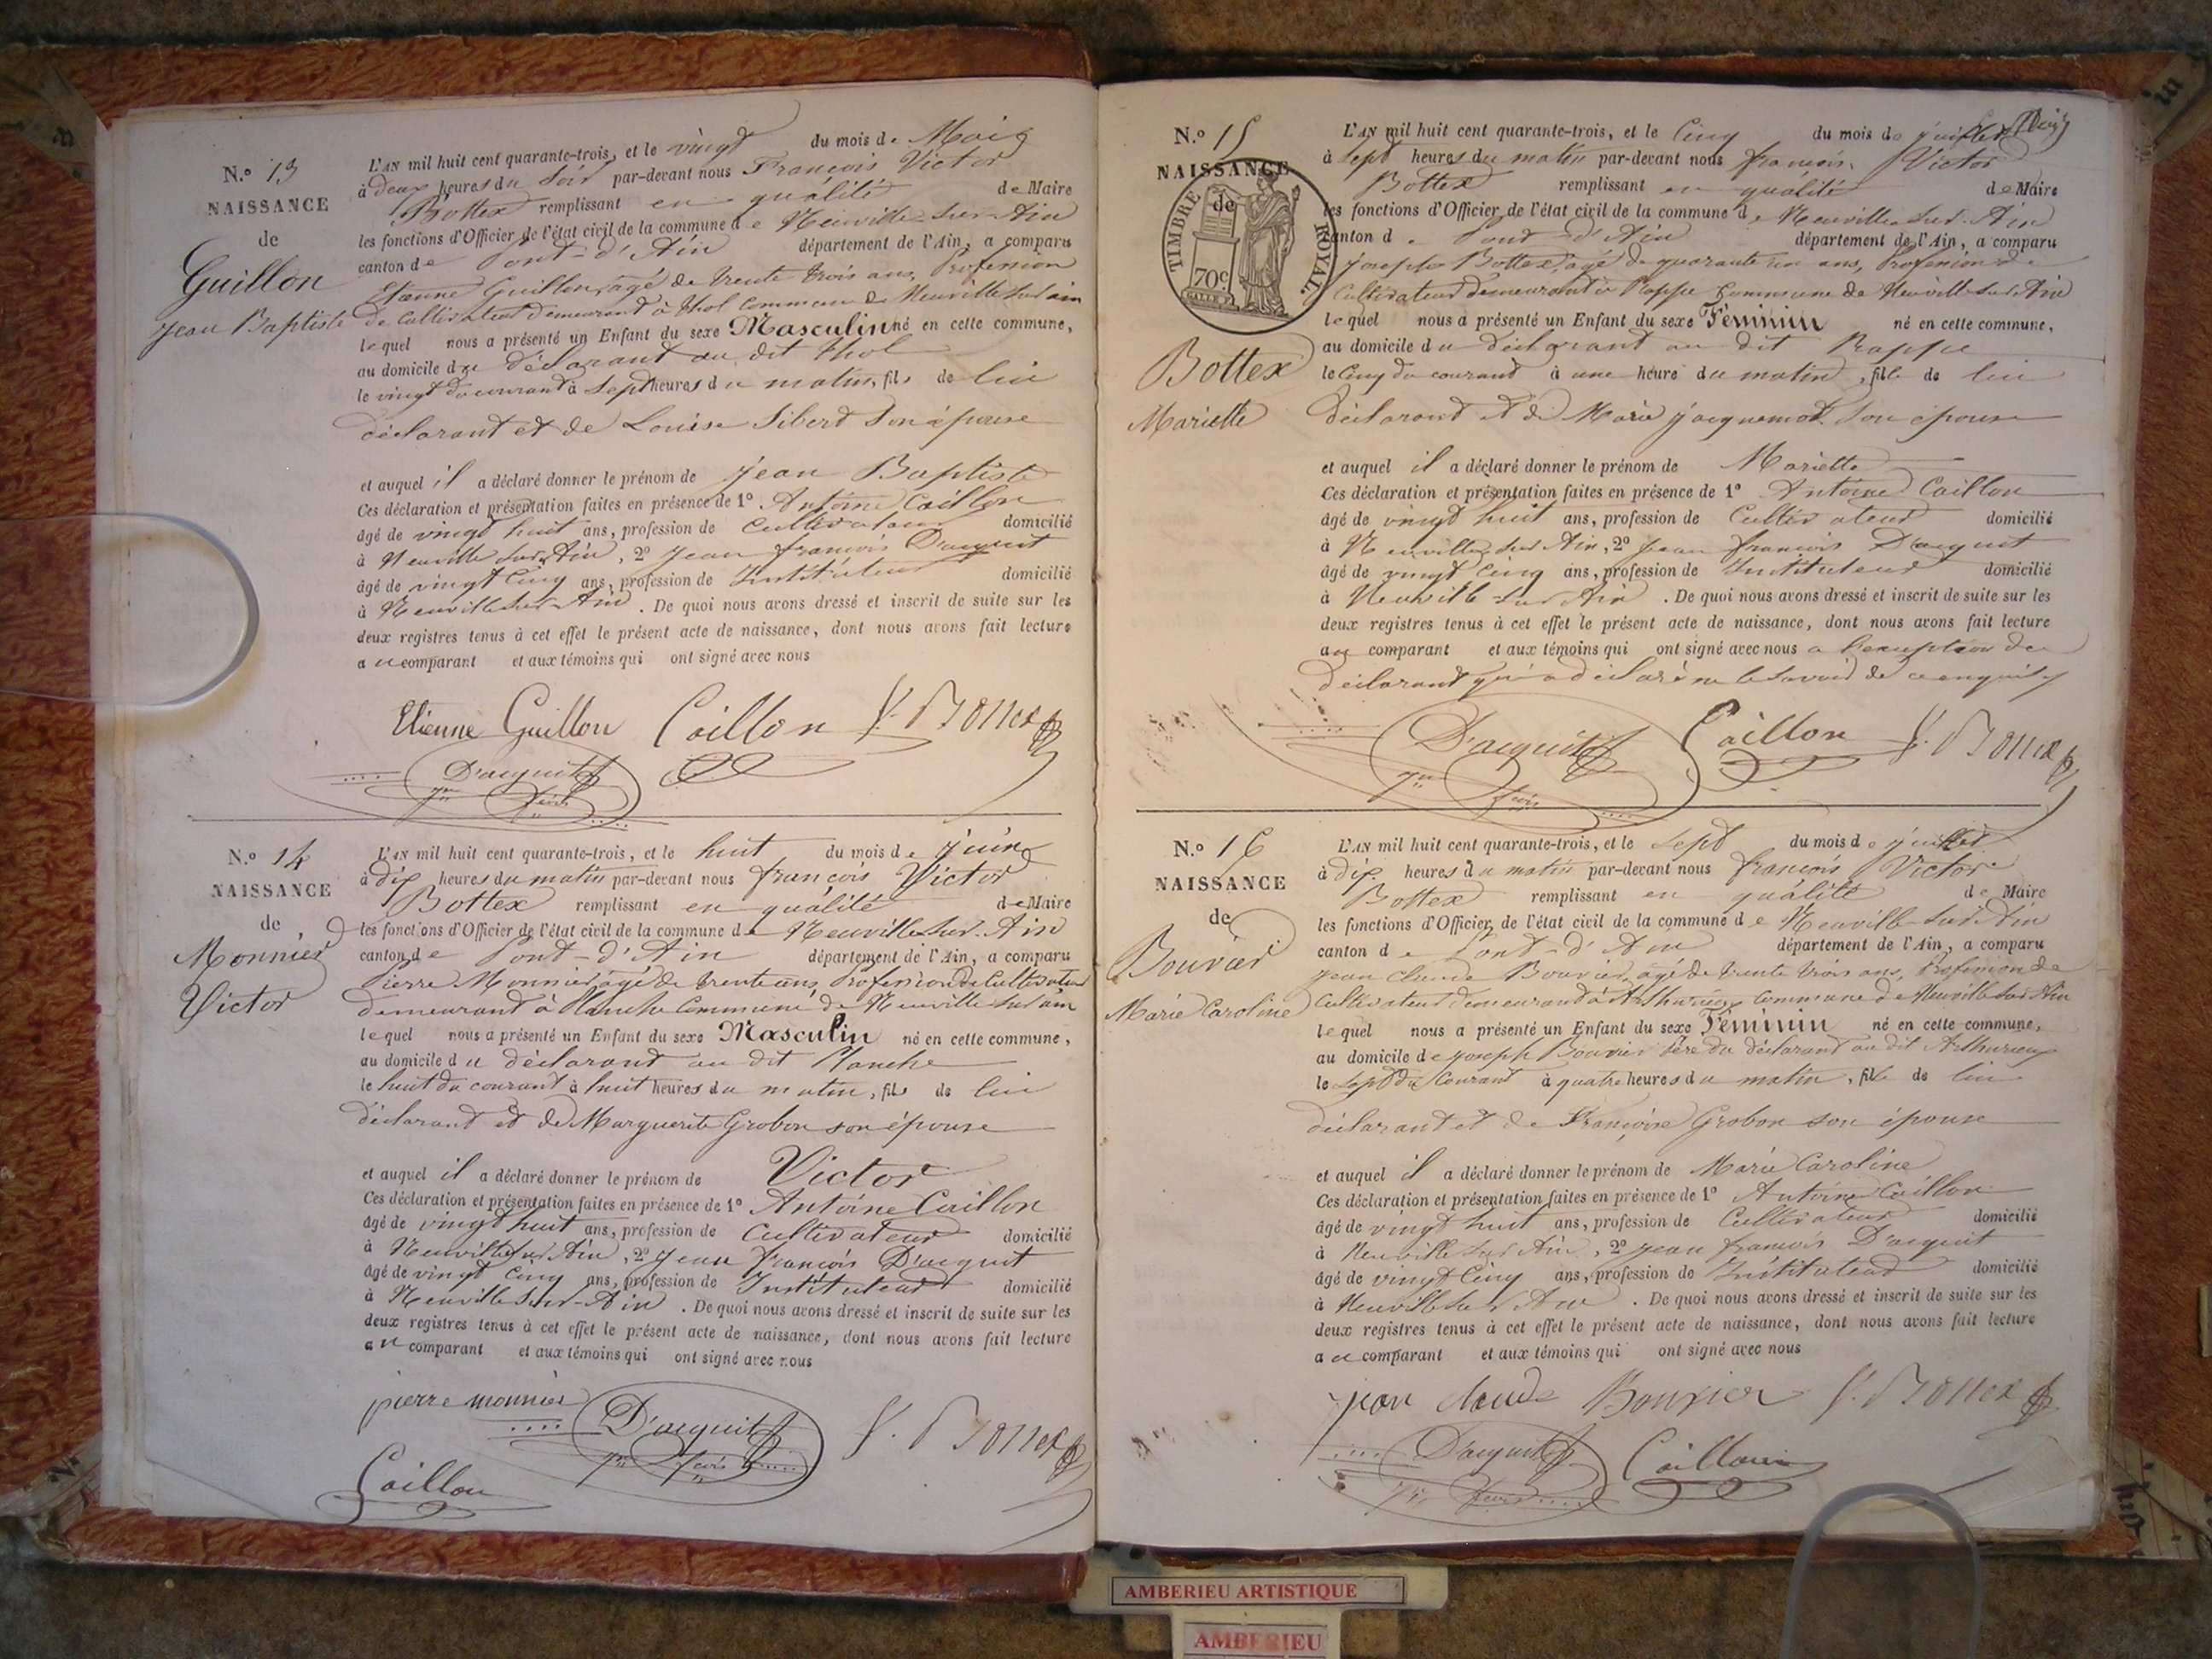 N.º 13
NAISSANCE
de
Guillon
Jean Baptiste
L'AN mil huit cent quarante-trois, et le vingt du mois de Mai
à deux heures du soir par-devant nous François Victor
Bottex remplissant en qualité de Maire
les fonctions d'Officier de l'état civil de la commune de Neuville-sur-Ain
canton de Pont-d'Ain département de l'Ain, a comparu
Etienne Guillon, agé de trente trois ans, Profession
de Cultivateur demeurant à Thol Commune de Neuville sur ain
lequel nous a présenté un Enfant du sexe Masculin né en cette commune,
au domicile du déclarant au dit thol
le vingt du courant à sept heures du matin, fils de lui
déclarant et de Louise Sibert son épouse
et auquel il a déclaré donner le prénom de Jean Baptiste
Ces déclaration et présentation faites en présence de 1º Antoine Caillon
âgé de vingt huit ans, profession de Cultivateur domicilié
à Neuville sur Ain, 2º Jean françois D'acquit
âgé de vingt Cinq ans, profession de Instituteur domicilié
à Neuville sur Ain. De quoi nous avons dressé et inscrit de suite sur les
deux registres tenus à cet effet le présent acte de naissance, dont nous avons fait lecture
au comparant et aux témoins qui ont signé avec nous
Etienne Guillon Caillon V. Bottex
D'acquit
jn fcois
N.º 14
NAISSANCE
de
Monnier
Victor
L'AN mil huit cent quarante-trois, et le huit du mois de juin
à dix heures du matin par-devant nous françois Victor
Bottex remplissant en qualité de Maire
les fonctions d'Officier de l'état civil de la commune de Neuville sur-Ain
canton de Pont-d'Ain département de l'Ain, a comparu
Pierre Monnier agé de trente ans, Profession de Cultivateur
demeurant à Planche Commune de Neuville sur ain
lequel nous a présenté un Enfant du sexe Masculin né en cette commune,
au domicile du déclarant au dit Planche
le huit du courant à huit heures du matin, fils de lui
déclarant et de Marguerite Grobon son épouse
et auquel il a déclaré donner le prénom de Victor
Ces déclaration et présentation faites en présence de 1º Antoine Caillon
âgé de vingt huit ans, profession de Cultivateur domicilié
à Neuville sur Ain, 2º Jean françois D'acquit
âgé de vingt Cinq ans, profession de Instituteur domicilié
à Neuville sur-Ain. De quoi nous avons dressé et inscrit de suite sur les
deux registres tenus à cet effet le présent acte de naissance, dont nous avons fait lecture
au comparant et aux témoins qui ont signé avec nous
pierre monnier D'acquit V. Bottex
jn fcois
Caillon
N.º 15
NAISSANCE
de
TIMBRE ROYAL
70c
Bottex
Mariette
L'AN mil huit cent quarante-trois, et le Cinq du mois de juillet
à sept heures du matin par-devant nous françois Victor
Bottex remplissant en qualité de Maire
les fonctions d'Officier de l'état civil de la commune de Neuville sur-Ain
canton de Pont-d'Ain département de l'Ain, a comparu
Joseph Bottex, agé de quarante un ans, Profession de
Cultivateur demeurant à Rappe Commune de Neuville sur Ain
lequel nous a présenté un Enfant du sexe Féminin né en cette commune,
au domicile du déclarant au dit Rappe
le Cinq du courant à une heure du matin, fille de lui
déclarant et de Marie jacquemot son épouse
et auquel il a déclaré donner le prénom de Mariette
Ces déclaration et présentation faites en présence de 1º Antoine Caillon
âgé de vingt huit ans, profession de Cultivateur domicilié
à Neuville sur Ain, 2º Jean françois D'acquit
âgé de vingt Cinq ans, profession de Instituteur domicilié
à Neuville-sur Ain. De quoi nous avons dressé et inscrit de suite sur les
deux registres tenus à cet effet le présent acte de naissance, dont nous avons fait lecture
au comparant et aux témoins qui ont signé avec nous a l'exception du
déclarant qui a déclaré ne le savoir de ce enquis
D'acquit Caillon V. Bottex
jn fcois
N.º 16
NAISSANCE
de
Bouvier
Marie Caroline
L'AN mil huit cent quarante-trois, et le sept du mois de juillet
à dix heures du matin par-devant nous françois Victor
Bottex remplissant en qualité de Maire
les fonctions d'Officier de l'état civil de la commune de Neuville sur Ain
canton de Pont-d'Ain département de l'Ain, a comparu
Jean Claude Bouvier, agé de trente trois ans, Profession de
Cultivateur demeurant à Commune de Neuville sur Ain
lequel nous a présenté un Enfant du sexe Féminin né en cette commune,
au domicile de Joseph Bouvier Père du déclarant au dit
le sept du Courant à quatre heures du matin, fille de lui
déclarant et de Françoise Grobon son épouse
et auquel il a déclaré donner le prénom de Marie Caroline
Ces déclaration et présentation faites en présence de 1º Antoine Caillon
âgé de vingt huit ans, profession de Cultivateur domicilié
à Neuville sur Ain, 2º Jean françois D'acquit
âgé de vingt Cinq ans, profession de Instituteur domicilié
à Neuville sur Ain. De quoi nous avons dressé et inscrit de suite sur les
deux registres tenus à cet effet le présent acte de naissance, dont nous avons fait lecture
au comparant et aux témoins qui ont signé avec nous
jean claude Bouvier V. Bottex
D'acquit Caillon
jn fcois
AMBERIEU ARTISTIQUE
AMBERIEU